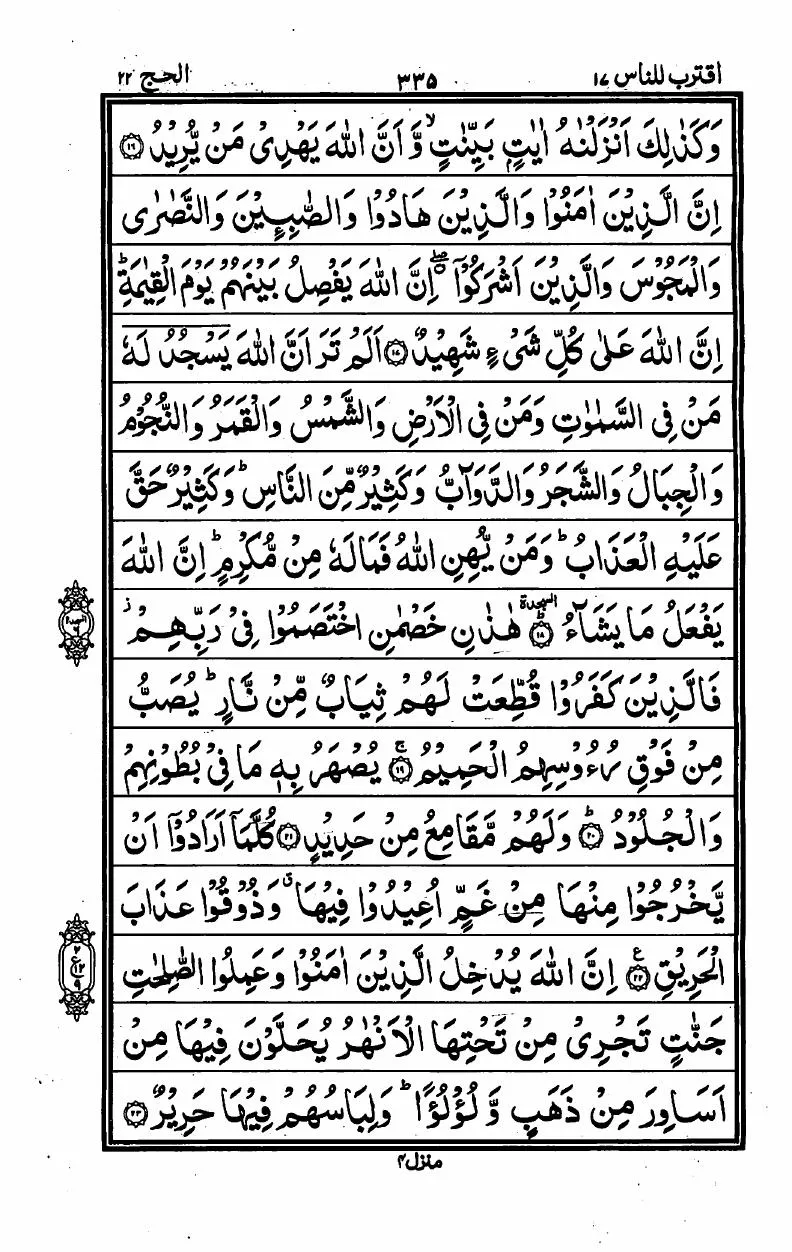 اقترب للناس ١٧ ٣٣٥ الحج ٢٢
وَكَذٰلِكَ اَنْزَلْنٰهُ اٰيٰتٍۭ بَيِّنٰتٍ ۙ وَّاَنَّ اللّٰهَ يَهْدِىْ مَنْ يُّرِيْدُ ﴿١٦﴾
اِنَّ الَّذِيْنَ اٰمَنُوْا وَالَّذِيْنَ هَادُوْا وَالصّٰبِـِٕيْنَ وَالنَّصٰرٰى
وَالْمَجُوْسَ وَالَّذِيْنَ اَشْرَكُوْٓا ۖ اِنَّ اللّٰهَ يَفْصِلُ بَيْنَهُمْ يَوْمَ الْقِيٰمَةِ ؕ
اِنَّ اللّٰهَ عَلٰى كُلِّ شَىْءٍ شَهِيْدٌ ﴿١٧﴾ اَلَمْ تَرَ اَنَّ اللّٰهَ يَسْجُدُ لَهٗ
مَنْ فِى السَّمٰوٰتِ وَمَنْ فِى الْاَرْضِ وَالشَّمْسُ وَالْقَمَرُ وَالنُّجُوْمُ
وَالْجِبَالُ وَالشَّجَرُ وَالدَّوَآبُّ وَكَثِيْرٌ مِّنَ النَّاسِ ؕ وَكَثِيْرٌ حَقَّ
عَلَيْهِ الْعَذَابُ ؕ وَمَنْ يُّهِنِ اللّٰهُ فَمَا لَهٗ مِنْ مُّكْرِمٍ ؕ اِنَّ اللّٰهَ
يَفْعَلُ مَا يَشَآءُ ؕ ﴿١٨﴾ السجدة هٰذٰنِ خَصْمٰنِ اخْتَصَمُوْا فِىْ رَبِّهِمْ ۫
السجدة ٦
فَالَّذِيْنَ كَفَرُوْا قُطِّعَتْ لَهُمْ ثِيَابٌ مِّنْ نَّارٍ ؕ يُصَبُّ
مِنْ فَوْقِ رُءُوْسِهِمُ الْحَمِيْمُ ۚ ﴿١٩﴾ يُصْهَرُ بِهٖ مَا فِىْ بُطُوْنِهِمْ
وَالْجُلُوْدُ ؕ ﴿٢٠﴾ وَلَهُمْ مَّقَامِعُ مِنْ حَدِيْدٍ ﴿٢١﴾ كُلَّمَآ اَرَادُوْٓا اَنْ
يَّخْرُجُوْا مِنْهَا مِنْ غَمٍّ اُعِيْدُوْا فِيْهَا ۗ وَذُوْقُوْا عَذَابَ
الْحَرِيْقِ ﴿٢٢﴾ ع اِنَّ اللّٰهَ يُدْخِلُ الَّذِيْنَ اٰمَنُوْا وَعَمِلُوا الصّٰلِحٰتِ
٢ ع ١٢ ٩
جَنّٰتٍ تَجْرِىْ مِنْ تَحْتِهَا الْاَنْهٰرُ يُحَلَّوْنَ فِيْهَا مِنْ
اَسَاوِرَ مِنْ ذَهَبٍ وَّلُؤْلُؤًا ؕ وَلِبَاسُهُمْ فِيْهَا حَرِيْرٌ ﴿٢٣﴾
منزل ٤